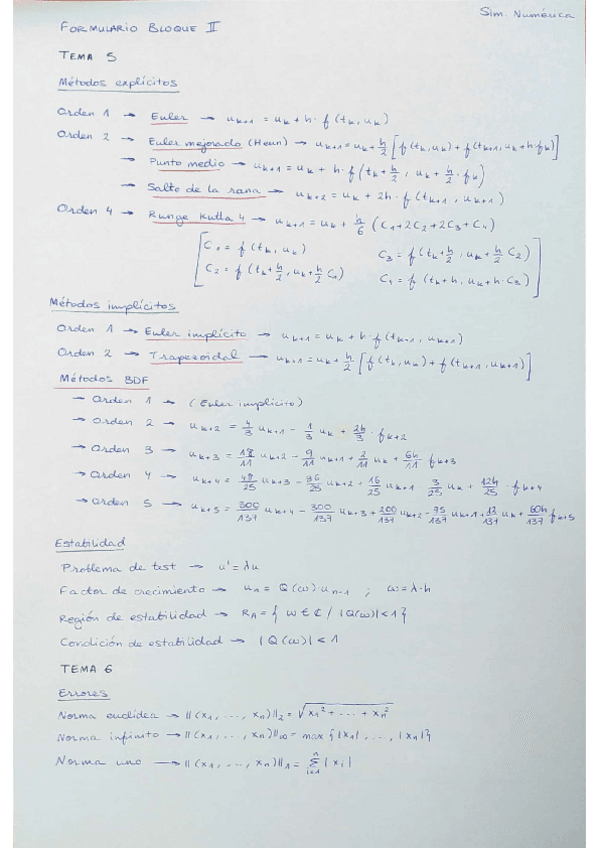 Sim. Numérica
FORMULARIO BLOQUE II
TEMA 5
Métodos explícitos
Orden 1 → Euler → u_{k+1} = u_k + h · f(t_k, u_k)
Orden 2 → Euler mejorado (Heun) → u_{k+1} = u_k + h/2 [f(t_k, u_k) + f(t_{k+1}, u_k + h·f_k)]
→ Punto medio → u_{k+1} = u_k + h · f(t_k + h/2, u_k + h/2 · f_k)
→ Salto de la rana → u_{k+2} = u_k + 2h · f(t_{k+1}, u_{k+1})
Orden 4 → Runge Kutta 4 → u_{k+1} = u_k + h/6 (C_1 + 2C_2 + 2C_3 + C_4)
[C_1 = f(t_k, u_k) C_3 = f(t_k + h/2, u_k + h/2 C_2)
C_2 = f(t_k + h/2, u_k + h/2 C_1) C_4 = f(t_k + h, u_k + h·C_3)]
Métodos implícitos
Orden 1 → Euler implícito → u_{k+1} = u_k + h · f(t_{k+1}, u_{k+1})
Orden 2 → Trapezoidal → u_{k+1} = u_k + h/2 [f(t_k, u_k) + f(t_{k+1}, u_{k+1})]
Métodos BDF
→ Orden 1 → (Euler implícito)
→ Orden 2 → u_{k+2} = 4/3 u_{k+1} - 1/3 u_k + 2h/3 · f_{k+2}
→ Orden 3 → u_{k+3} = 18/11 u_{k+2} - 9/11 u_{k+1} + 2/11 u_k + 6h/11 f_{k+3}
→ Orden 4 → u_{k+4} = 48/25 u_{k+3} - 36/25 u_{k+2} + 16/25 u_{k+1} 3/25 u_k + 12h/25 · f_{k+4}
→ Orden 5 → u_{k+5} = 300/137 u_{k+4} - 300/137 u_{k+3} + 200/137 u_{k+2} - 75/137 u_{k+1} + 12/137 u_k + 60h/137 f_{k+5}
Estabilidad
Problema de test → u' = λu
Factor de crecimiento → u_n = Q(ω) · u_{n-1} ; ω = λ·h
Región de estabilidad → R_A = { ω ∈ ℂ / |Q(ω)| < 1 }
Condición de estabilidad → |Q(ω)| < 1
TEMA 6
Errores
Norma euclídea → ||(x_1, ..., x_n)||_2 = √(x_1² + ... + x_n²)
Norma infinito → ||(x_1, ..., x_n)||_∞ = max {|x_1|, ..., |x_n|}
Norma uno → ||(x_1, ..., x_n)||_1 = Σ_{i=1}^{n} |x_i|